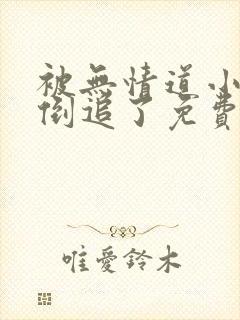 被無情道小
倒追了免費
唯愛鈴木